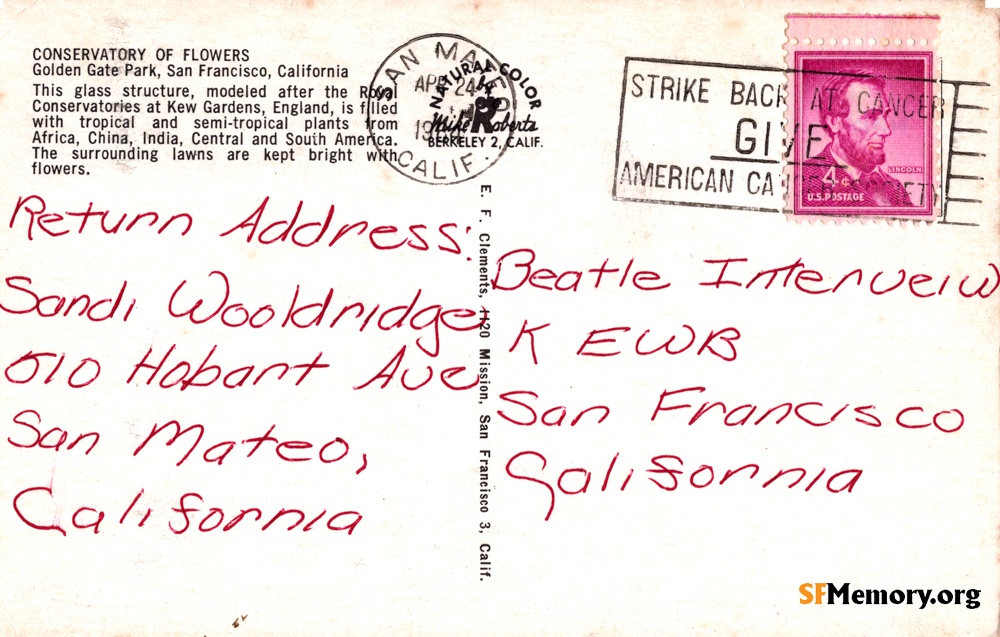 CONSERVATORY OF FLOWERS
Golden Gate Park, San Francisco, California
This glass structure, modeled after the Royal
Conservatories at Kew Gardens, England, is filled
with tropical and semi-tropical plants from
Africa, China, India, Central and South America.
The surrounding lawns are kept bright with
flowers.
SAN MATEO
APR 24
CALIF.
NATURAL COLOR
Mike Roberts
BERKELEY 2, CALIF.
STRIKE BACK AT CANCER
GIVE
AMERICAN CANCER SOCIETY
LINCOLN
4¢
U.S. POSTAGE
Return Address:
Sandi Wooldridge
510 Hobart Ave
San Mateo,
California
E. F. Clements, 1120 Mission, San Francisco 3, Calif.
Beatle Interveiw
K EWB
San Francisco
California
SFMemory.org